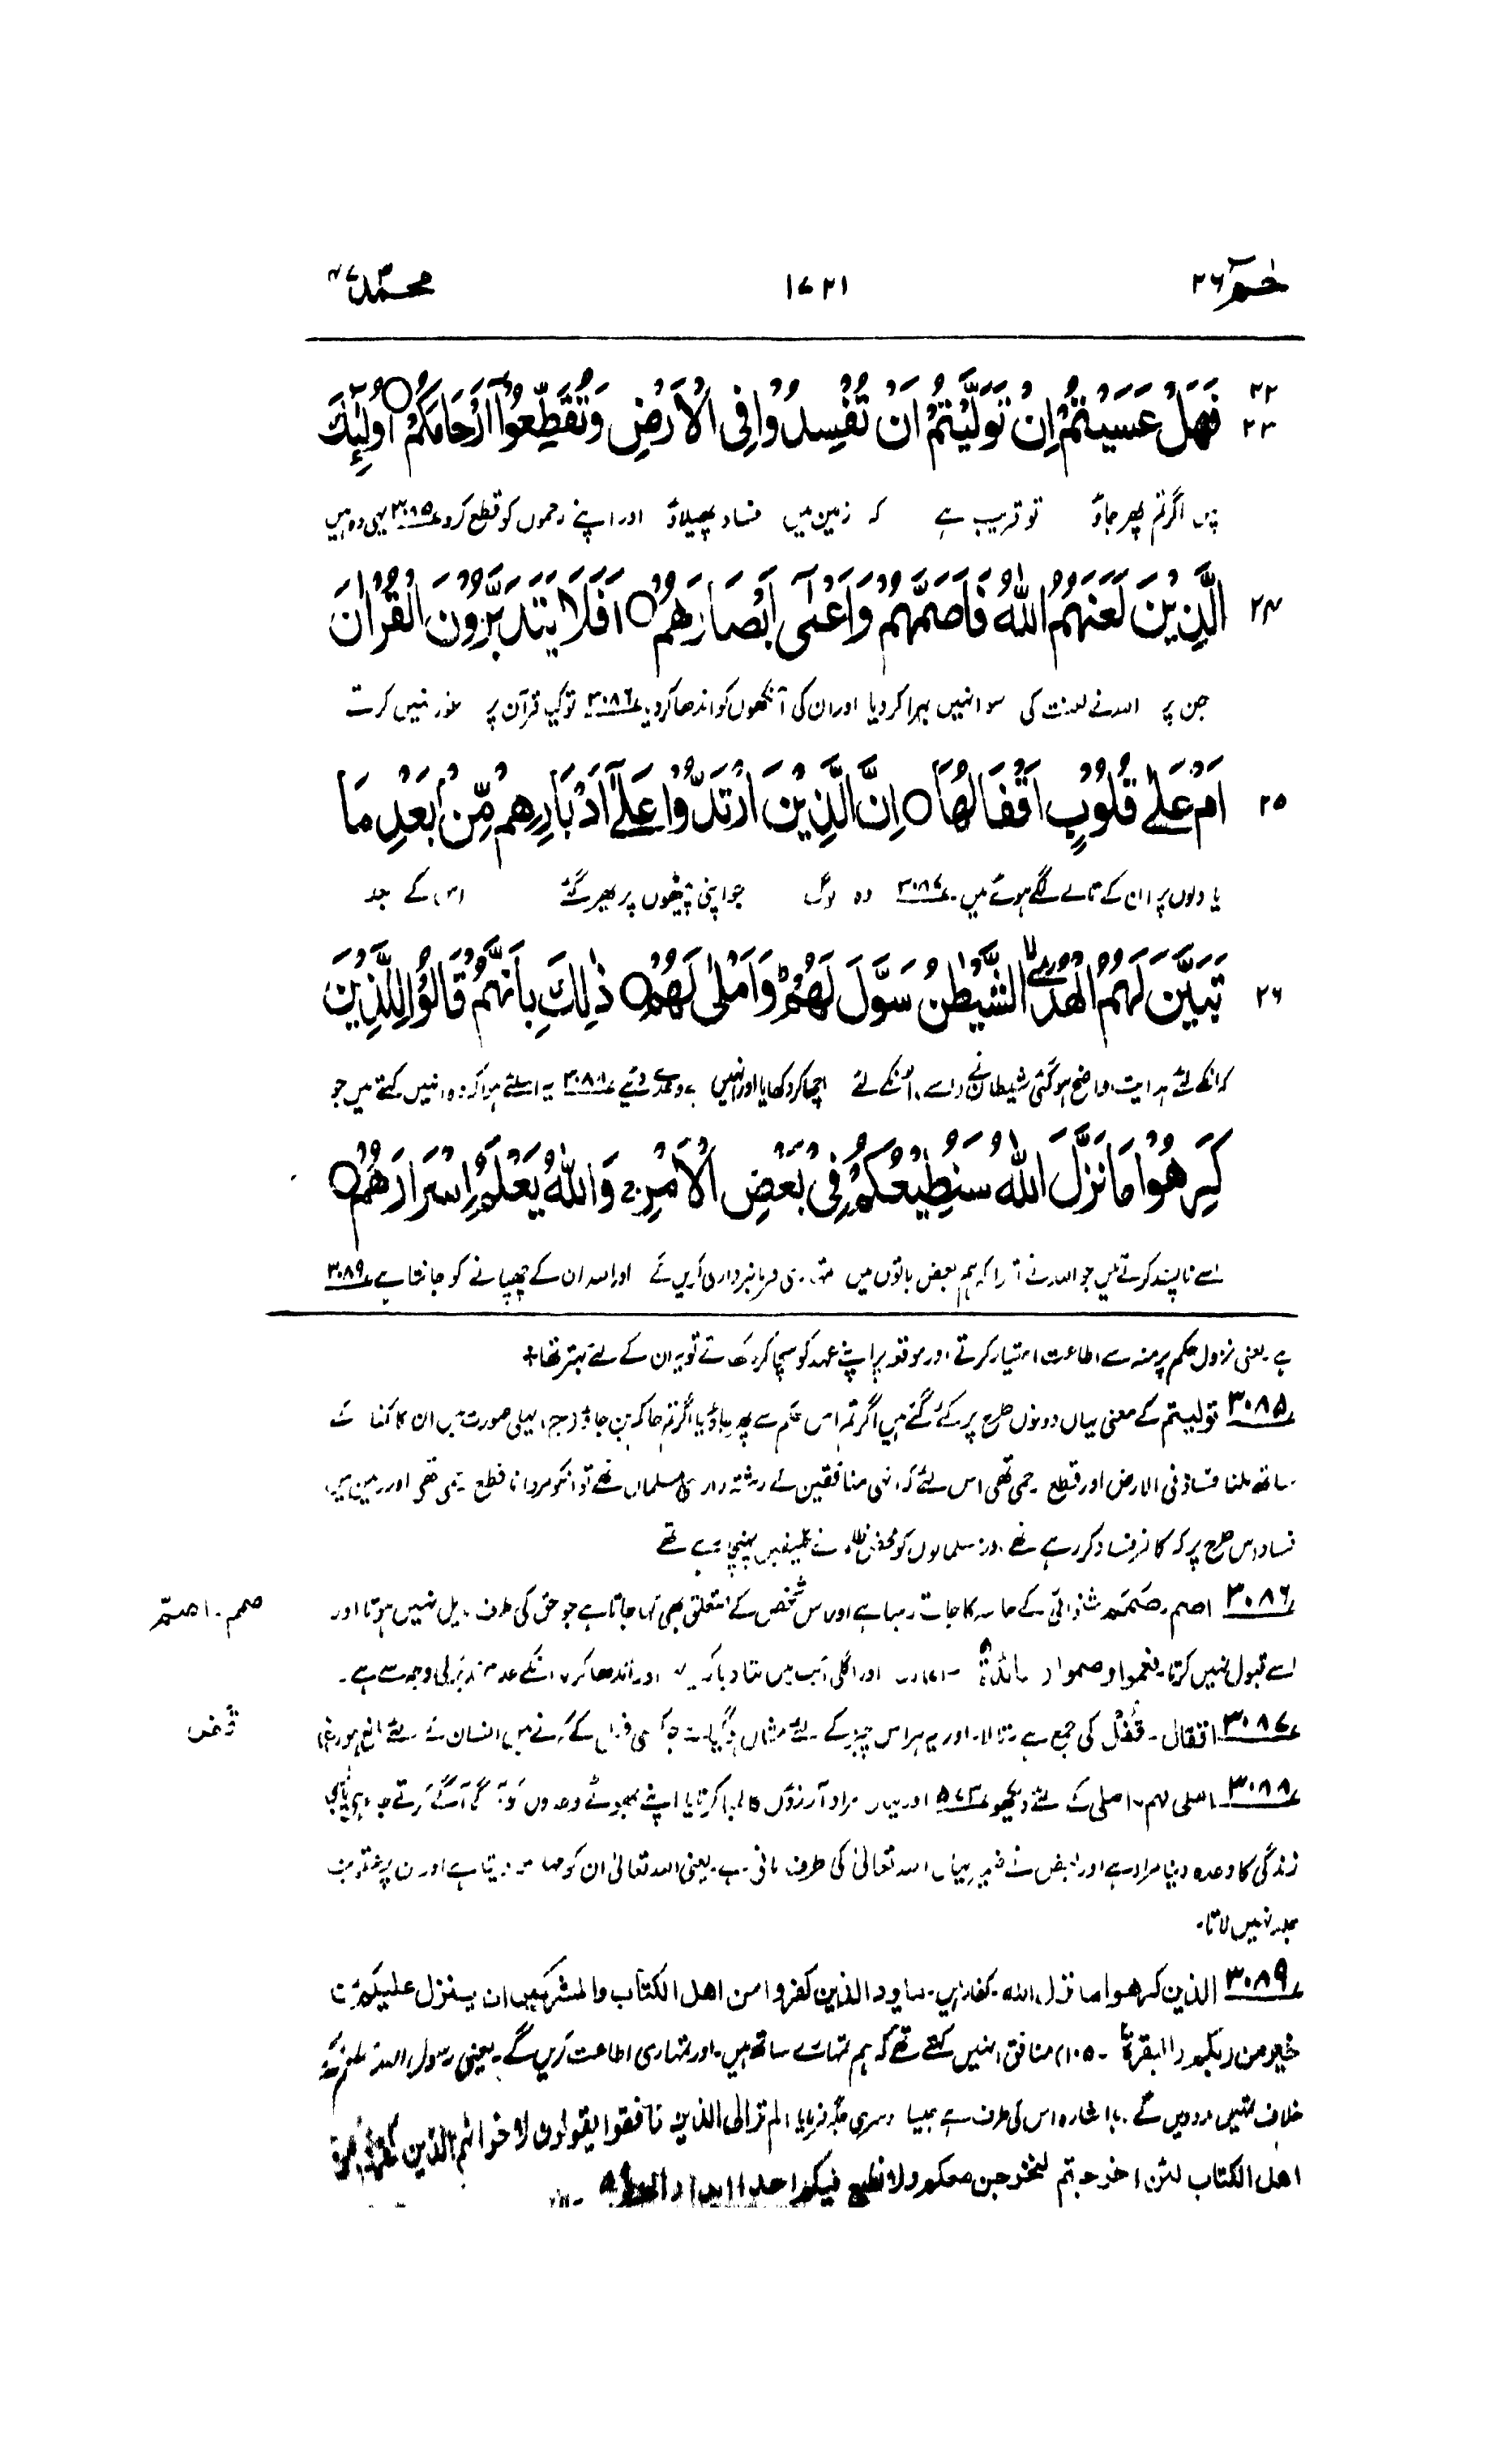 حٰمٓ ٢٦
١٧٢١
محمّد ٤٧
٢٢
٢٣
فَهَلْ عَسَيْتُمْ اِنْ تَوَلَّيْتُمْ اَنْ تُفْسِدُوْا فِى الْاَرْضِ وَتُقَطِّعُوْٓا اَرْحَامَكُمْ ○ اُولٰٓئِكَ
پس اگر تم پھر جاؤ تو قریب ہے کہ زمین میں فساد پھیلاؤ اور اپنے رحموں کو قطع کرو ٣٠٨٥ یہی وہ ہیں
٢٤
الَّذِيْنَ لَعَنَهُمُ اللّٰهُ فَاَصَمَّهُمْ وَاَعْمٰٓى اَبْصَارَهُمْ ○ اَفَلَا يَتَدَبَّرُوْنَ الْقُرْاٰنَ
جن پر اللہ نے لعنت کی سو انہیں بہرا کر دیا اور ان کی آنکھوں کو اندھا کر دیا ٣٠٨٦ تو کیا قرآن پر غور نہیں کرتے
٢٥
اَمْ عَلٰى قُلُوْبٍ اَقْفَالُهَا ○ اِنَّ الَّذِيْنَ ارْتَدُّوْا عَلٰٓى اَدْبَارِهِمْ مِّنْۢ بَعْدِ مَا
یا دلوں پر ان کے تالے لگے ہوئے ہیں۔ ٣٠٨٧ وہ لوگ جو اپنی پیٹھوں پر پھر گئے اس کے بعد
٢٦
تَبَيَّنَ لَهُمُ الْهُدَى ۙ الشَّيْطٰنُ سَوَّلَ لَهُمْ ؕ وَاَمْلٰى لَهُمْ ○ ذٰلِكَ بِاَنَّهُمْ قَالُوْا لِلَّذِيْنَ
کہ انکے لئے ہدایت واضح ہوگئی شیطان نے اسے انکے لئے اچھا کر دکھایا اور انہیں وعدے دئیے ٣٠٨٨ یہ اسلئے ہوا کہ وہ انہیں کہتے ہیں جو
كَرِهُوْا مَا نَزَّلَ اللّٰهُ سَنُطِيْعُكُمْ فِىْ بَعْضِ الْاَمْرِ ۚ وَاللّٰهُ يَعْلَمُ اِسْرَارَهُمْ ○
اسے ناپسند کرتے ہیں جو اللہ نے اتارا کہ ہم بعض باتوں میں تمہاری فرمانبرداری کریں گے اور اللہ ان کے چھپانے کو جانتا ہے ٣٠٨٩
ہے۔ یعنی نزول حکم پر منہ سے اطاعت اختیار کرتے اور موقعہ پر اپنے عہد کو سچا کر دکھاتے تو یہ ان کے لئے بہتر تھا+
٣٠٨٥ تولیتم کے معنی یہاں دونوں طرح پر کئے گئے ہیں اگر تم اس حکم سے پھر جاؤ یا اگر تم حاکم بن جاؤ پہلی صورت میں ان کا کفار کے
ساتھ ملنا فساد فی الارض اور قطع رحمی تھی اس لئے کہ انہی منافقین کے رشتہ دار مسلمان تھے تو انکو مروانا قطع رحمی تھی اور زمین میں
فساد اس طرح پر کہ کافر فساد کر رہے تھے اور مسلمانوں کو محض ظلم سے تکلیفیں پہنچا رہے تھے
٣٠٨٦ اصم۔ صمم شنوائی کے حاسہ کا جاتے رہنا ہے اور اس شخص کے متعلق بھی کہا جاتا ہے جو حق کی طرف مایل نہیں ہوتا اور
صمم۔ اصمّ
اسے قبول نہیں کرتا۔ فعموا وصموا المائدۃ اور اگلی آیت میں بتا دیا کہ یہ اور اندھا کرنا انکے عدم تدبر کی وجہ سے ہے۔
٣٠٨٧ اقفال۔ قُفل کی جمع ہے تالا۔ اور یہ ہر اس چیز کے لئے مثال ہوگیا ہے جو کسی فعل کے کرنے میں انسان کے لئے مانع ہو
قفل
٣٠٨٨ املی لھم۔ املی کے لئے دیکھو ٥٧٣ اور یہاں مراد آرزوؤں کا لمبا کرنا یا اپنے جھوٹے وعدوں کو آگے کرتے جانا
زندگی کا وعدہ دینا مراد ہے اور بعض نے ضمیر یہاں اللہ تعالیٰ کی طرف مانی ہے۔ یعنی اللہ تعالیٰ ان کو مہلت دیتا ہے اور ان پر عقوبت
جلد نہیں لاتا۔
٣٠٨٩ الذین کرھوا ما نزل اللہ۔ کفار ہیں۔ ما یود الذین کفروا من اھل الکتاب والمشرکین ان ینزل علیکم من
خیر من ربکم (البقرۃ۔ ١٠٥) منافق انہیں کہتے تھے کہ ہم تمہارے ساتھ ہیں۔ اور تمہاری اطاعت کریں گے۔ یعنی رسول اللہ صلعم کے
خلاف تمہیں مدد دیں گے۔ یا اشارہ اس کی طرف ہے جیسا دوسری جگہ فرمایا الم تر الی الذین نافقوا یقولون لاخوانھم الذین کفروا من
اھل الکتاب لئن اخرجتم لنخرجن معکم ولا نطیع فیکم احدا ابدا